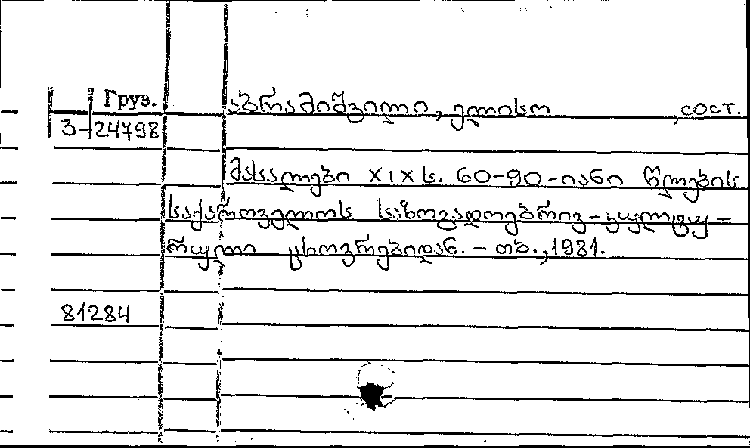 Груз. აბრამიშვილი, ელისო , сост.
3-24798
მასალები XIX ს. 60-90-იანი წლების
საქართველოს საზოგადოებრივ-კულტუ-
რული ცხოვრებიდან. - თბ., 1981.
81284